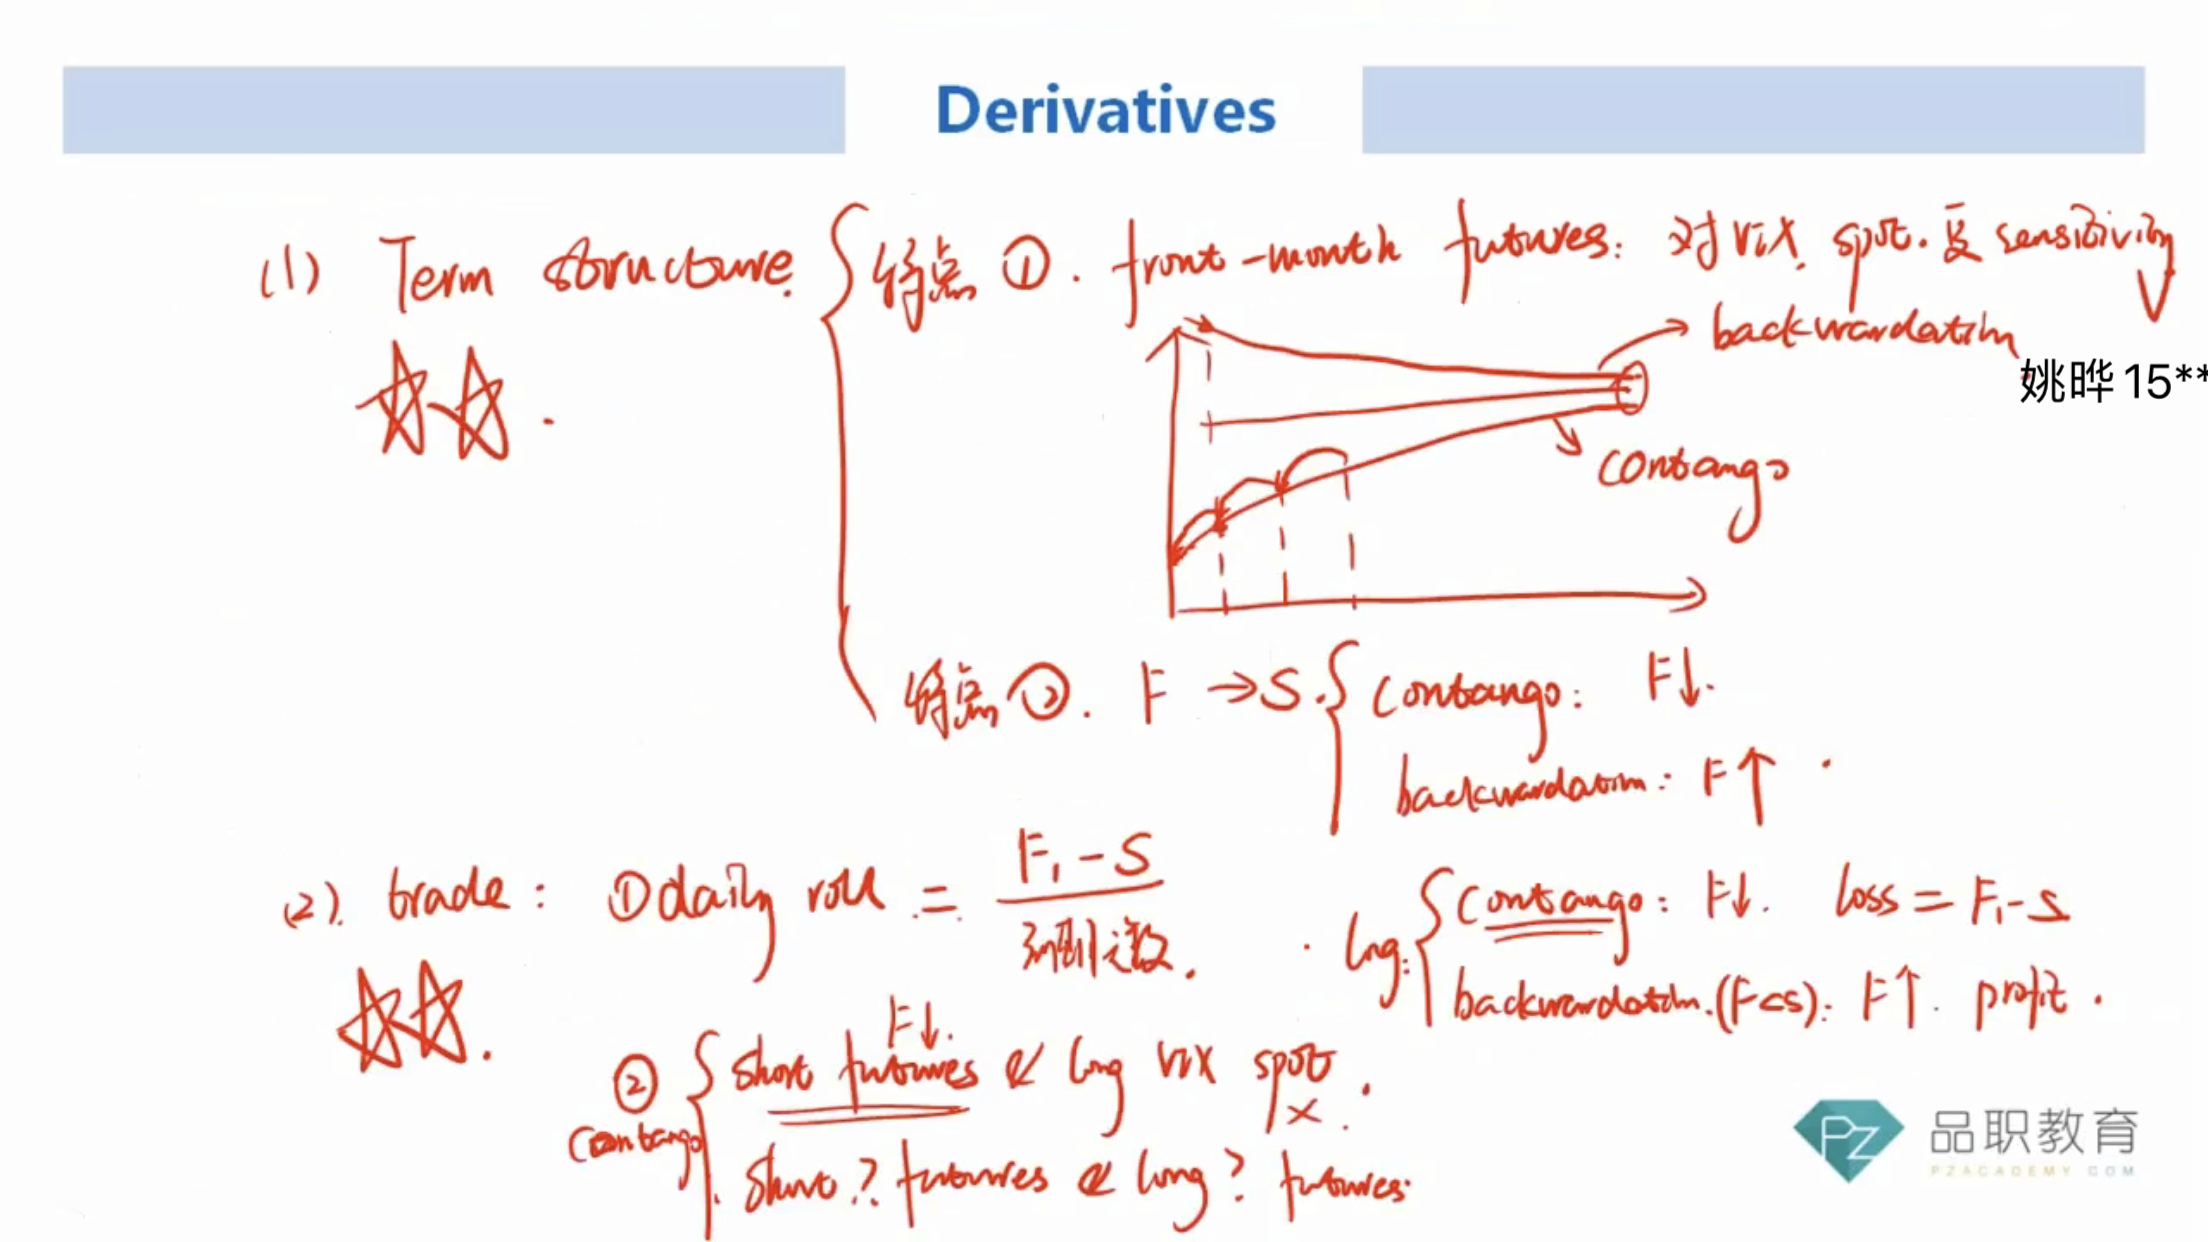 Derivatives
(1) Term structure. 特点 ①. front-month futures: 对 VIX spot. 更 sensitivity
backwardation
姚晔 15**
contango
特点 ②. F → S. contango: F↓.
backwardation: F↑.
(2). trade: ① daily roll = F₁ - S
到期天数. long: contango: F↓. loss = F₁ - S
backwardation. (F<S): F↑. profit.
F↓.
② short futures & long VIX spot ×.
contango
short ? futures & long ? futures.
品职教育
PZ
PZACADEMY.COM